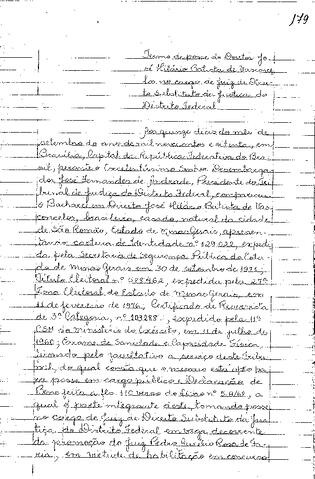 179
Termo de posse do Doutor Jo-
sé Hilário Batista de Vasconcel-
los no cargo de Juiz de Direi-
to Substituto da Justiça do
Distrito Federal
Aos quinze dias do mês de
setembro do ano de mil novecentos e oitenta, em
Brasília, Capital da República Federativa do Bra-
sil, presente o Excelentíssimo Senhor Desembarga-
dor José Fernandes de Andrade, Presidente do Tri-
bunal de Justiça do Distrito Federal, compareceu
o Bacharel em Direito José Hilário Batista de Vas-
concellos, brasileiro, casado, natural da cidade
de São Romão, Estado de Minas Gerais, apresen-
tando carteira de Identidade nº 129.022, expedi-
da pela Secretaria de Segurança Pública do Esta-
do de Minas Gerais em 30 de setembro de
Título Eleitoral nº 428.462, expedido pela 27ª
Zona Eleitoral do Estado de Minas Gerais, em
11 de fevereiro de 1976; Certificado de Reservista
de 3ª Categoria, nº 109288, expedido pela 11ª
CSM do Ministério do Exército, em 11 de julho de
1960; Exames de Sanidade e Capacidade Física,
firmado pelo facultativo a serviço deste Tribu-
nal, do qual consta que o mesmo está apto pa-
ra posse em cargo público e Declaração de
Bens feita à fls. 11 verso do livro nº
qual é parte integrante deste, tomando posse
no cargo de Juiz de Direito Substituto da Jus-
tiça do Distrito Federal em vaga decorrente
da promoção do Juiz Pedro Aurélio Rosa de Fa-
ria, em virtude de habilitação em concurso